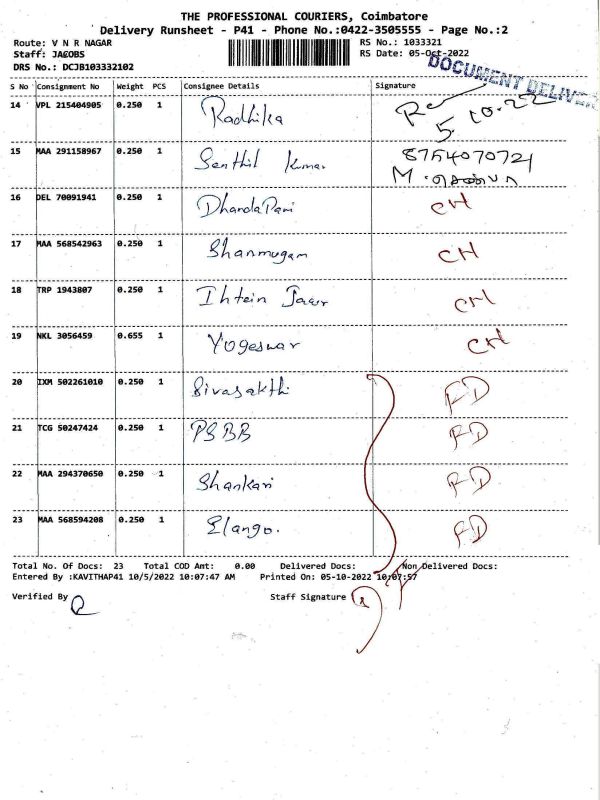 THE PROFESSIONAL COURIERS, Coimbatore
Delivery Runsheet - P41 - Phone No.:0422-3505555 - Page No.:2
Route: V N R NAGAR
Staff: JACOBS
DRS No.: DCJB103332102
RS No.: 1033321
RS Date: 05-Oct-2022
DOCUMENT DELIVER
S No Consignment No Weight PCS Consignee Details Signature
14 VPL 215404905 0.250 1 Radhika
5.10.22
15 MAA 291158967 0.250 1 Senthil Kumar 8754070721
M.
16 DEL 70091941 0.250 1 DhandaPani CH
17 MAA 568542963 0.250 1 Shanmugam CH
18 TRP 1943807 0.250 1 CH
19 NKL 3056459 0.655 1 Yogeswar CH
20 IXM 502261010 0.250 1 Sivasakthi FD
21 TCG 50247424 0.250 1 PSBB FD
22 MAA 294370650 0.250 1 Shankari FD
23 MAA 568594208 0.250 1 Elango. FD
Total No. Of Docs: 23 Total COD Amt: 0.00 Delivered Docs: Non Delivered Docs:
Entered By :KAVITHAP41 10/5/2022 10:07:47 AM Printed On: 05-10-2022 10:07:57
Verified By Staff Signature